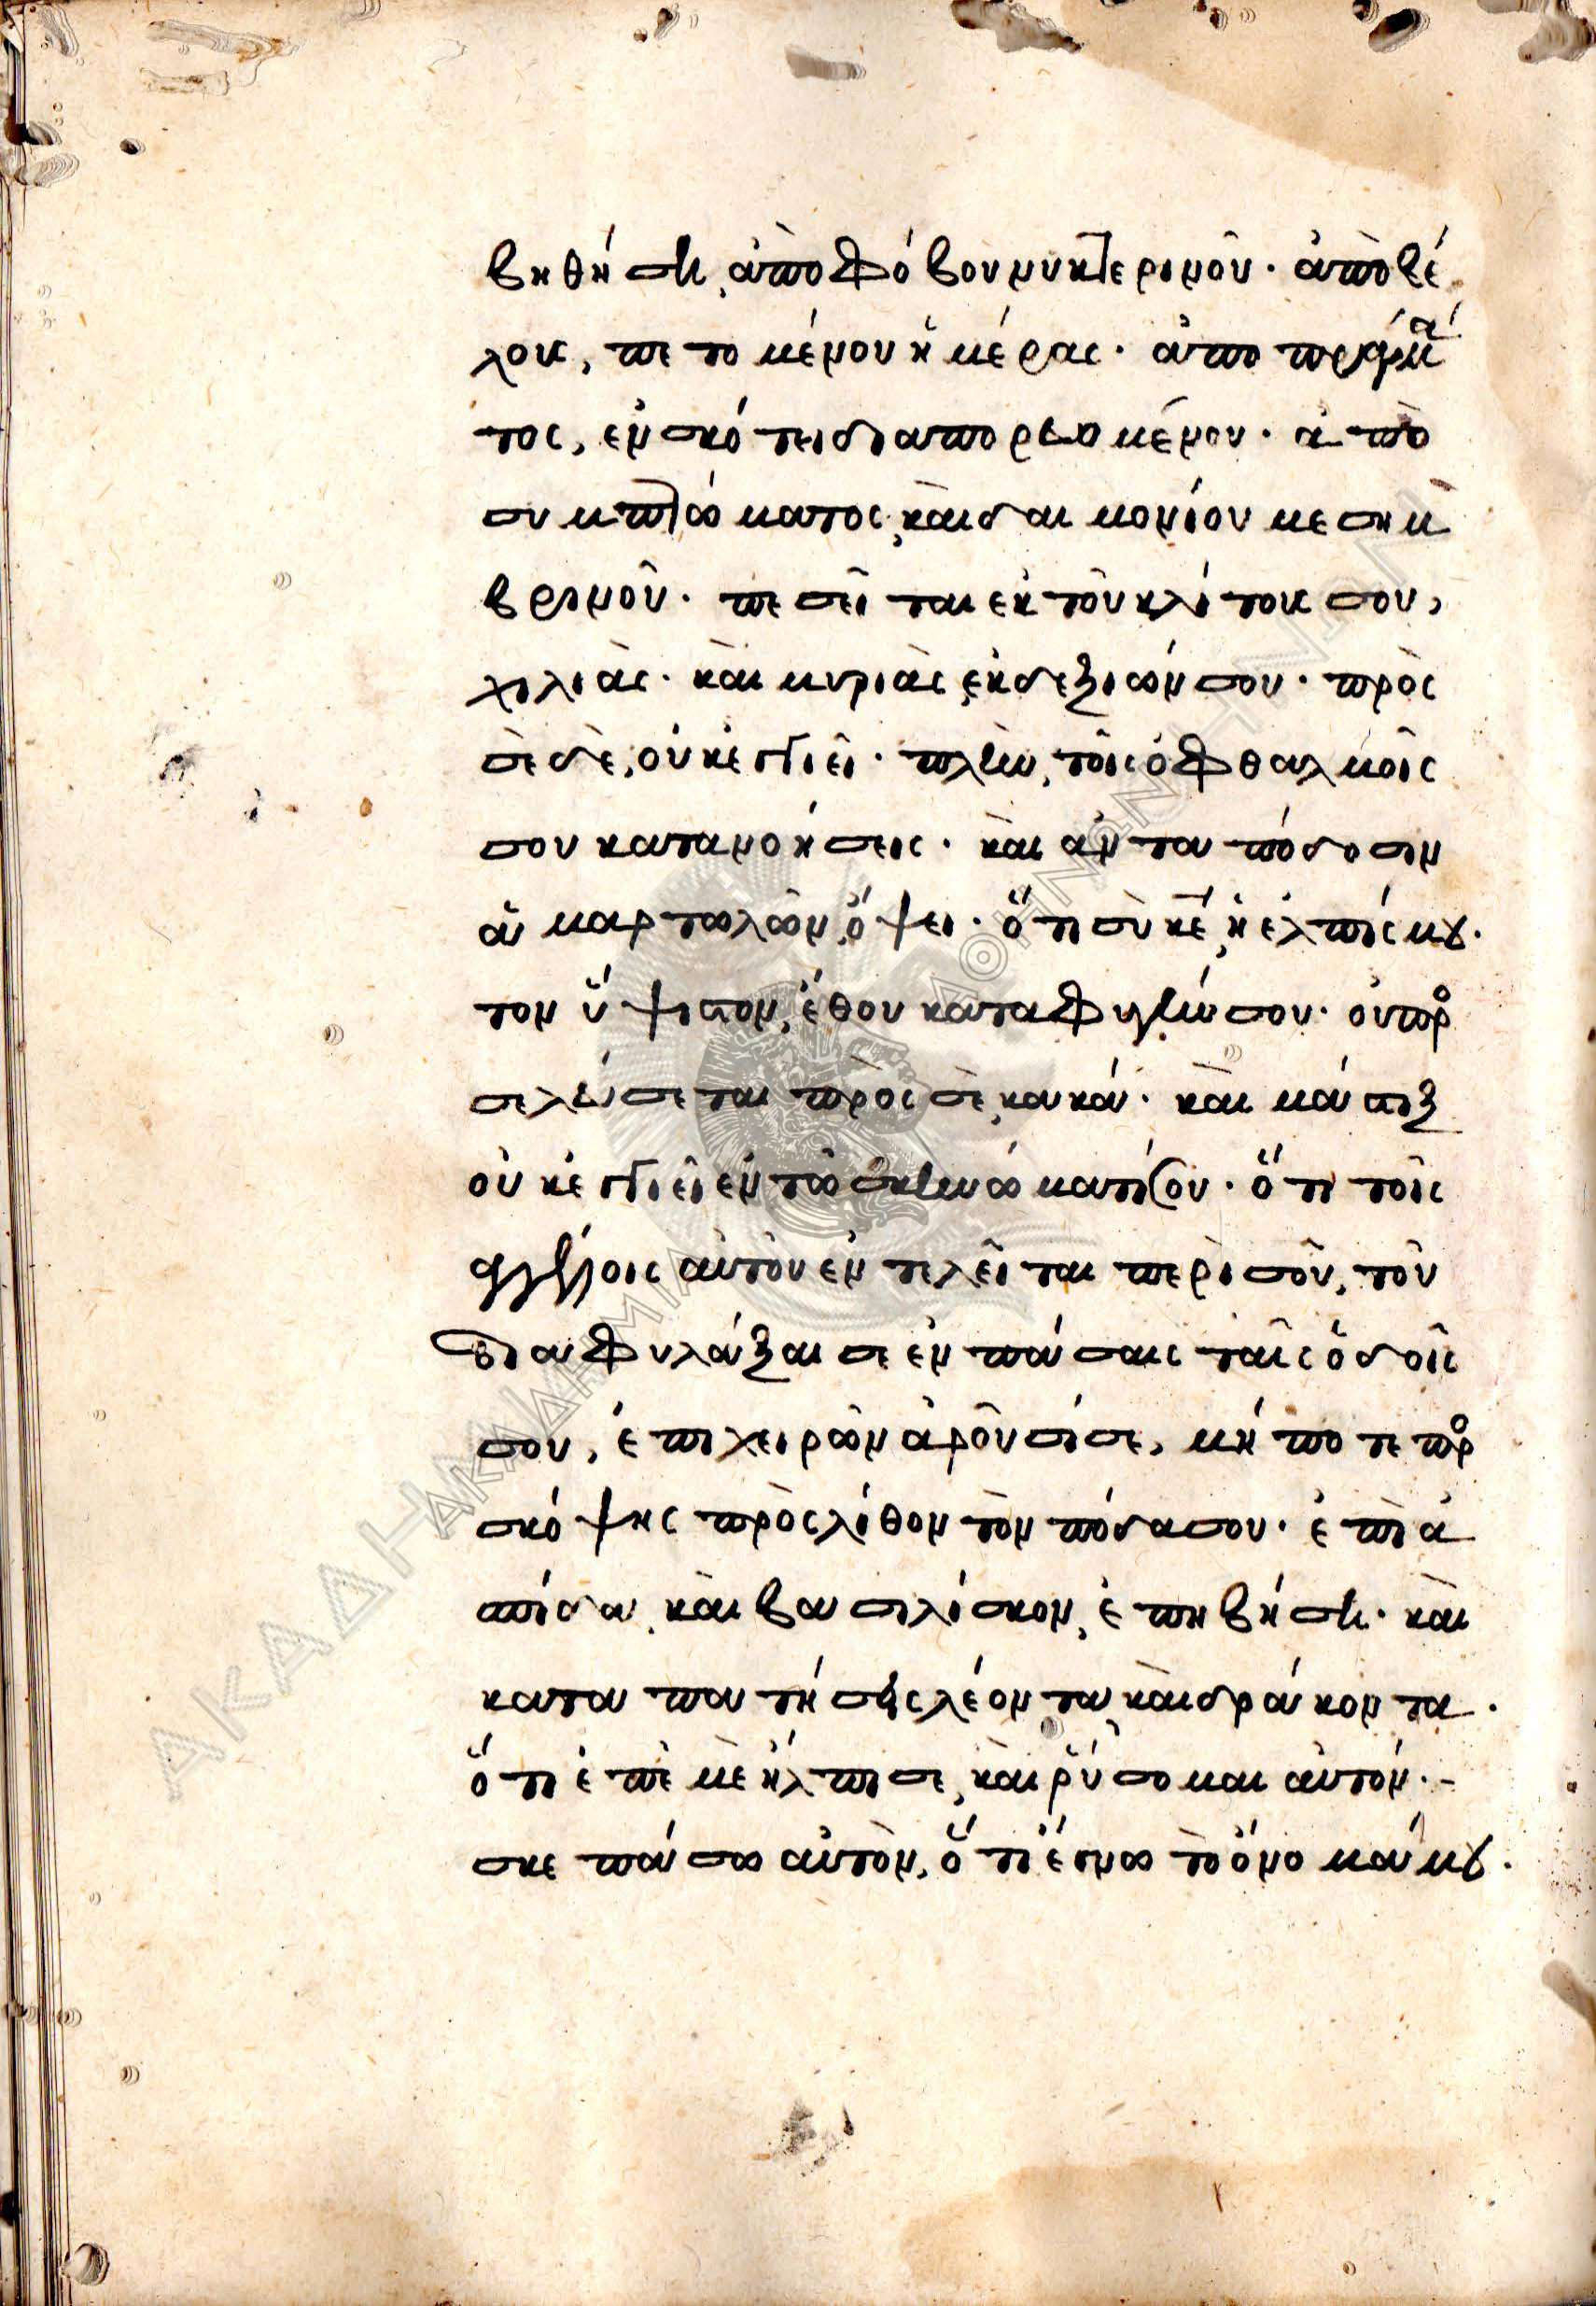 βηθήση, ἀπὸ φόβου νυκτερινοῦ. ἀπὸ βέ
λους, πετομένου ἡμέρας. ἀπο πράγμα
τος, ἐν σκότει διαπορευομένου. ἀπὸ
συμπτώματος, καὶ δαιμονίου μεσημ
βρινοῦ. πεσεῖται ἐκ τοῦ κλίτους σου,
χιλιὰς. καὶ μυριὰς ἐκ δεξιών σου. πρὸς
σὲ δὲ, οὐκ ἐγγιεῖ. πλὴν, τοῖς ὀφθαλμοῖς
σου κατανοήσεις. καὶ ἀνταπόδοσιν
ἁμαρτωλῶν, ὄψει. ὅτι σὺ κε, ἡ ἐλπίς μου.
τον ὕψιστον, ἔθου καταφυγήν σου. οὐ προ
σελεύσεται πρὸς σὲ, κακά. καὶ μάστιξ
οὐκ ἐγγιεῖ ἐν τῶ σκηνώματί σου. ὅτι τοῖς
ἀγγέλοις αὐτοῦ ἐντελεῖται περὶ σοῦ, τοῦ
διαφυλάξαι σε ἐν πάσαις ταῖς ὁδοῖς
σου, ἐπι χειρῶν ἀροῦσί σε, μήποτε προ
σκόψης πρὸς λίθον τὸν πόδα σου. ἐπὶ ἀ
σπίδα, καὶ βασιλίσκον, ἐπιβήση. καὶ
καταπατήσεις λέοντα καὶ δράκοντα.
ὅτι ἐπ' ἐμὲ ἤλπισε, καὶ ῥύσομαι αὐτόν.-
σκεπάσω αὐτὸν, ὅτι ἔγνω τὸ ὄνομά μου.